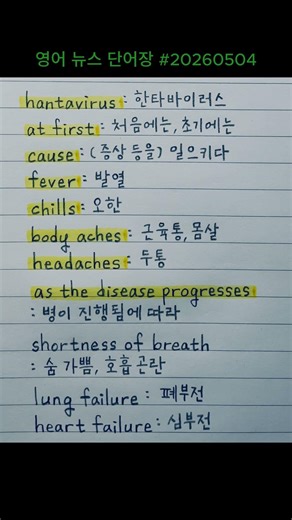 영어 뉴스 단어장 #20260504
hantavirus : 한타바이러스
at first : 처음에는, 초기에는
cause : (증상 등을) 일으키다
fever : 발열
chills : 오한
body aches : 근육통, 몸살
headaches : 두통
as the disease progresses
: 병이 진행됨에 따라
shortness of breath
: 숨 가쁨, 호흡 곤란
lung failure : 폐부전
heart failure : 심부전